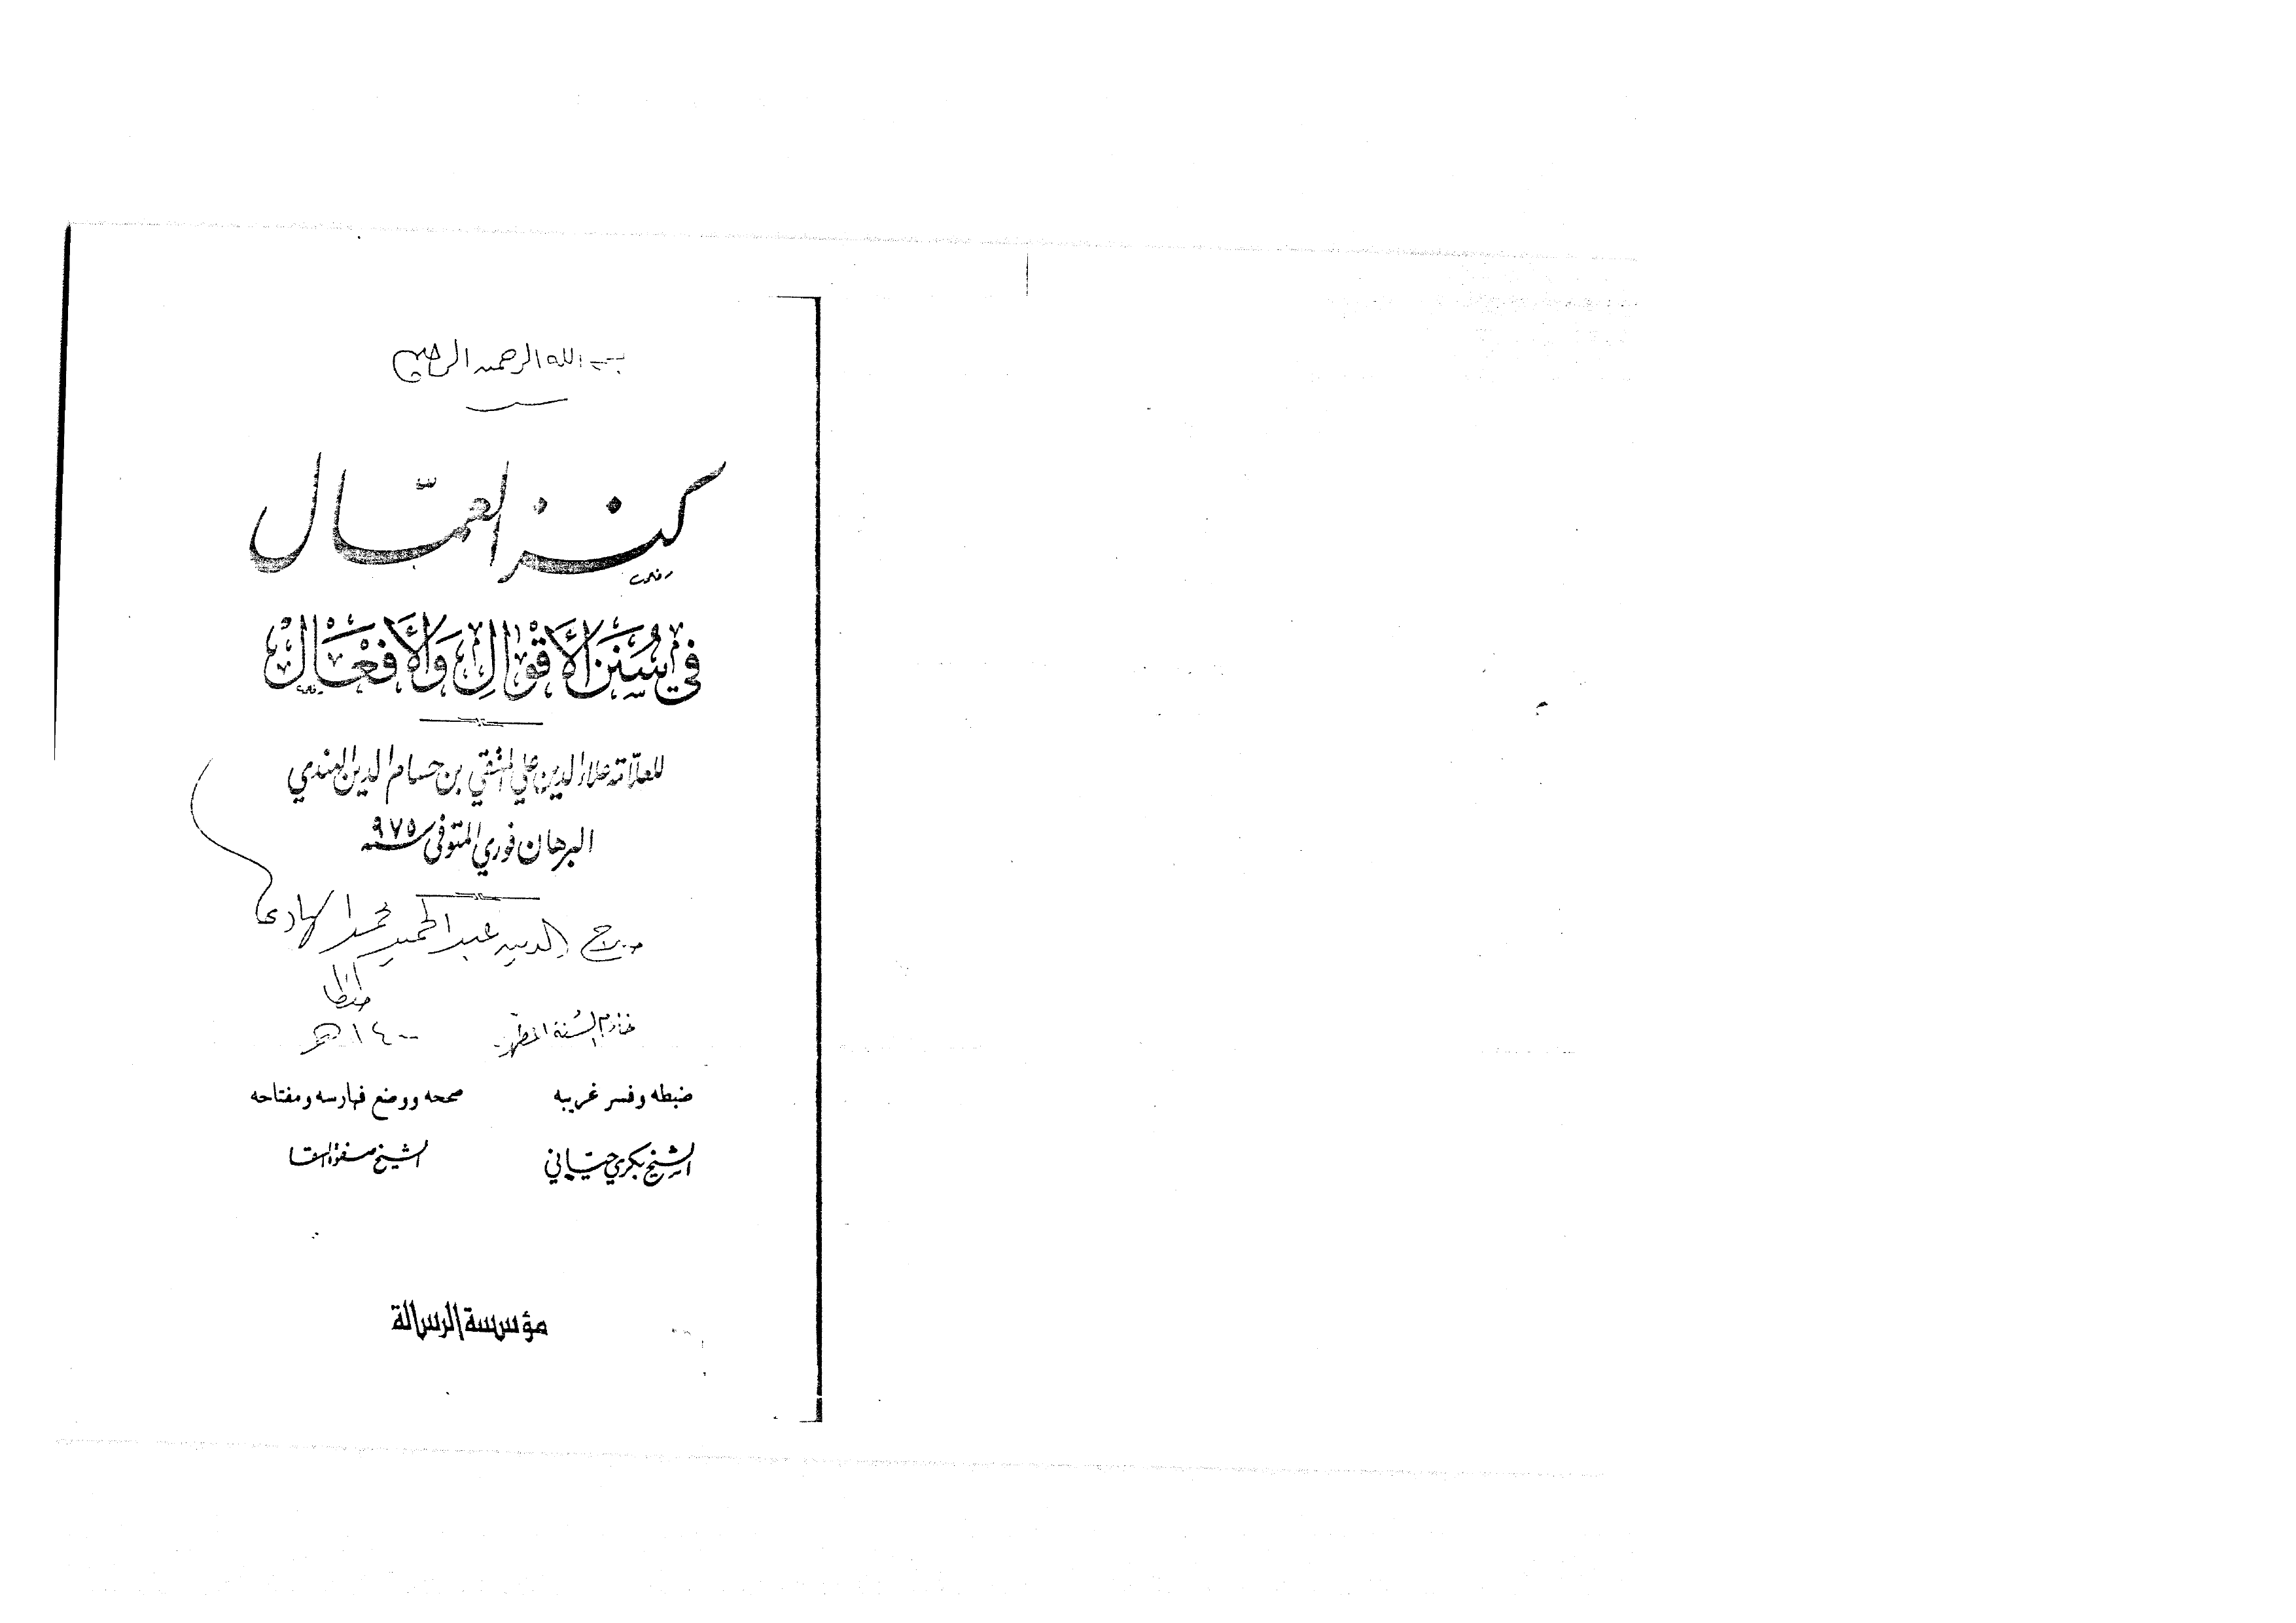 بسم الله الرحمن الرحيم
كنز العمّال
في سُنَنِ الأَقْوَالِ وَالأَفْعَال
للعلّامة علاء الدين علي المتقي بن حسام الدين الهندي
البرهان فوري المتوفى سنة ٩٧٥
سراج الدين عبد الحميد محمد الهادى
طنطا
خادم السُنة المطهرة ١٤٠٠ هـ
ضبطه وفسر غريبه صححه ووضع فهارسه ومفتاحه
الشيخ بكري حيّاني الشيخ صفوة السقا
مؤسسة الرسالة